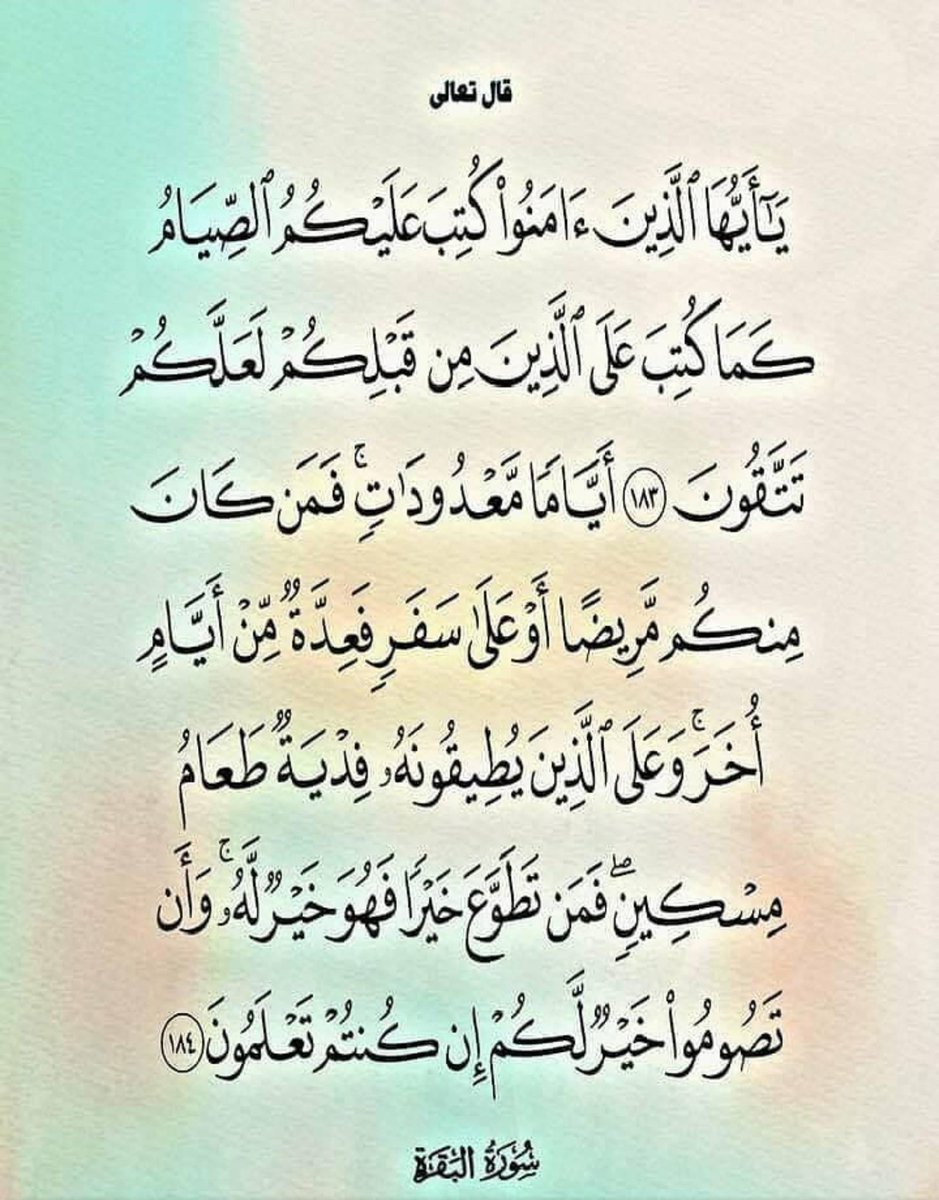 قال تعالى
يَٰٓأَيُّهَا ٱلَّذِينَ ءَامَنُوا۟ كُتِبَ عَلَيْكُمُ ٱلصِّيَامُ
كَمَا كُتِبَ عَلَى ٱلَّذِينَ مِن قَبْلِكُمْ لَعَلَّكُمْ
تَتَّقُونَ ١٨٣ أَيَّامًا مَّعْدُودَٰتٍ ۚ فَمَن كَانَ
مِنكُم مَّرِيضًا أَوْ عَلَىٰ سَفَرٍ فَعِدَّةٌ مِّنْ أَيَّامٍ
أُخَرَ ۚ وَعَلَى ٱلَّذِينَ يُطِيقُونَهُۥ فِدْيَةٌ طَعَامُ
مِسْكِينٍ ۖ فَمَن تَطَوَّعَ خَيْرًا فَهُوَ خَيْرٌ لَّهُۥ ۚ وَأَن
تَصُومُوا۟ خَيْرٌ لَّكُمْ إِن كُنتُمْ تَعْلَمُونَ ١٨٤
سُورَةُ البَقَرَة